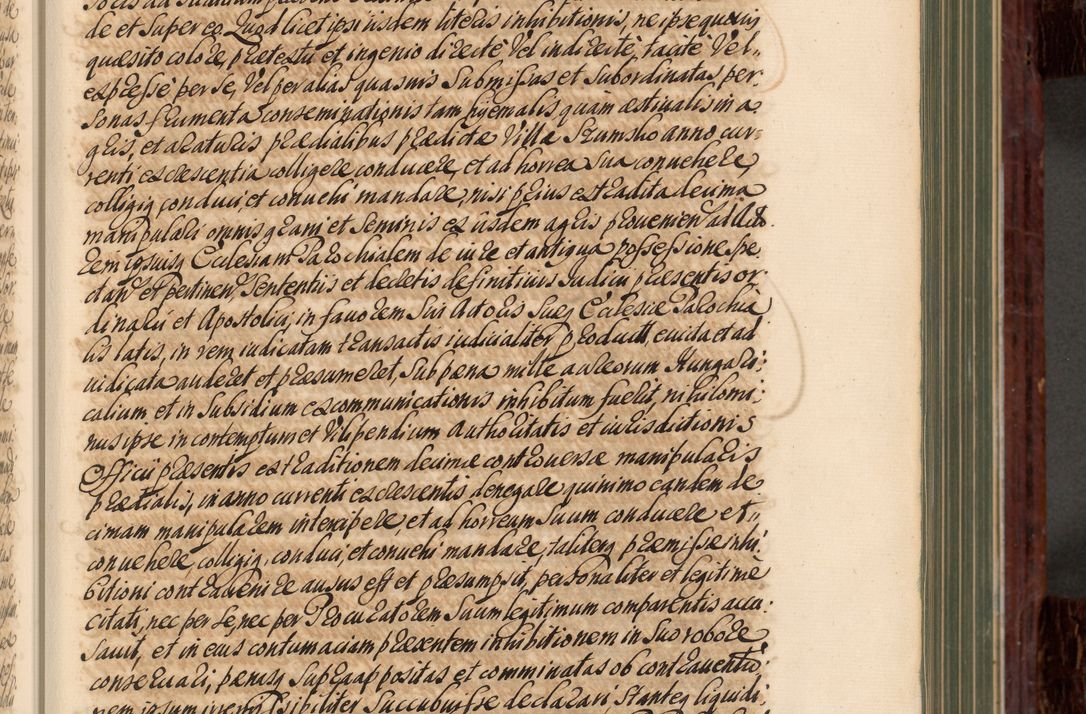 de et super eo, Quod licet ipsi iisdem literis inhibitionis, ne ipse quovis
quæsito colore, prætextu et ingenio directè vel indirectè, tacitè vel
expressè per se, vel per alias quasuis submissas et subordinatas per
sonas frumenta conseminationis tam hyemalis quàm æstiualis in a
gris, et araturis prædialibus prædictæ Villæ Szumsko anno cur
renti excrescentia colligere conducere, et ad horrea sua conuehere,
colligiq conduci et conuehi mandare, nisi prius extradita decima
manipulari omnis grani et seminis ex iisdem agris prouenien ad
rem ipsiusq Ecclesiam Parochialem de iure et antiqua possessione spe
ctan et pertinen, Sententiis et decretis definitiuis Iudicii præsentis or
dinarii et Apostolici, in fauorem sui Actoris suæq Ecclesiæ Parochia
lis latis, in rem iudicatam transactis iudicialiter product, euicta et ad
iudicata auderet et præsumeret, sub pæna mille aureorum Hungari
calium et in subsidium excommunicationis inhibitum fuerit, nihilomi
nus ipse in contemptum et vilipendium Authoritatis et iurisdictionis
Officii præsentis extraditionem decimæ controuersæ manipularis
prædialis, in anno currenti excrescentis denegare quinimo eandem de
cimam manipularem intercipere, et ad horreum suum conducere et
conuehere, colligiq, conduci, et conuehi mandare, taliterq præmissæ inhi
bitioni contrauenire ausus est et præsumpsit, personaliter et legitimè
citati, nec per se, nec per Procuratorem suum legitimum comparentis accu
sauit, et in eius contumaciam præsentem inhibitionem in suo robore
conseruari, pænasq supra appositas et comminatas ob contrauentio
nem ipsum irremissibiliter succubuisse declarari, stanteq liquidi